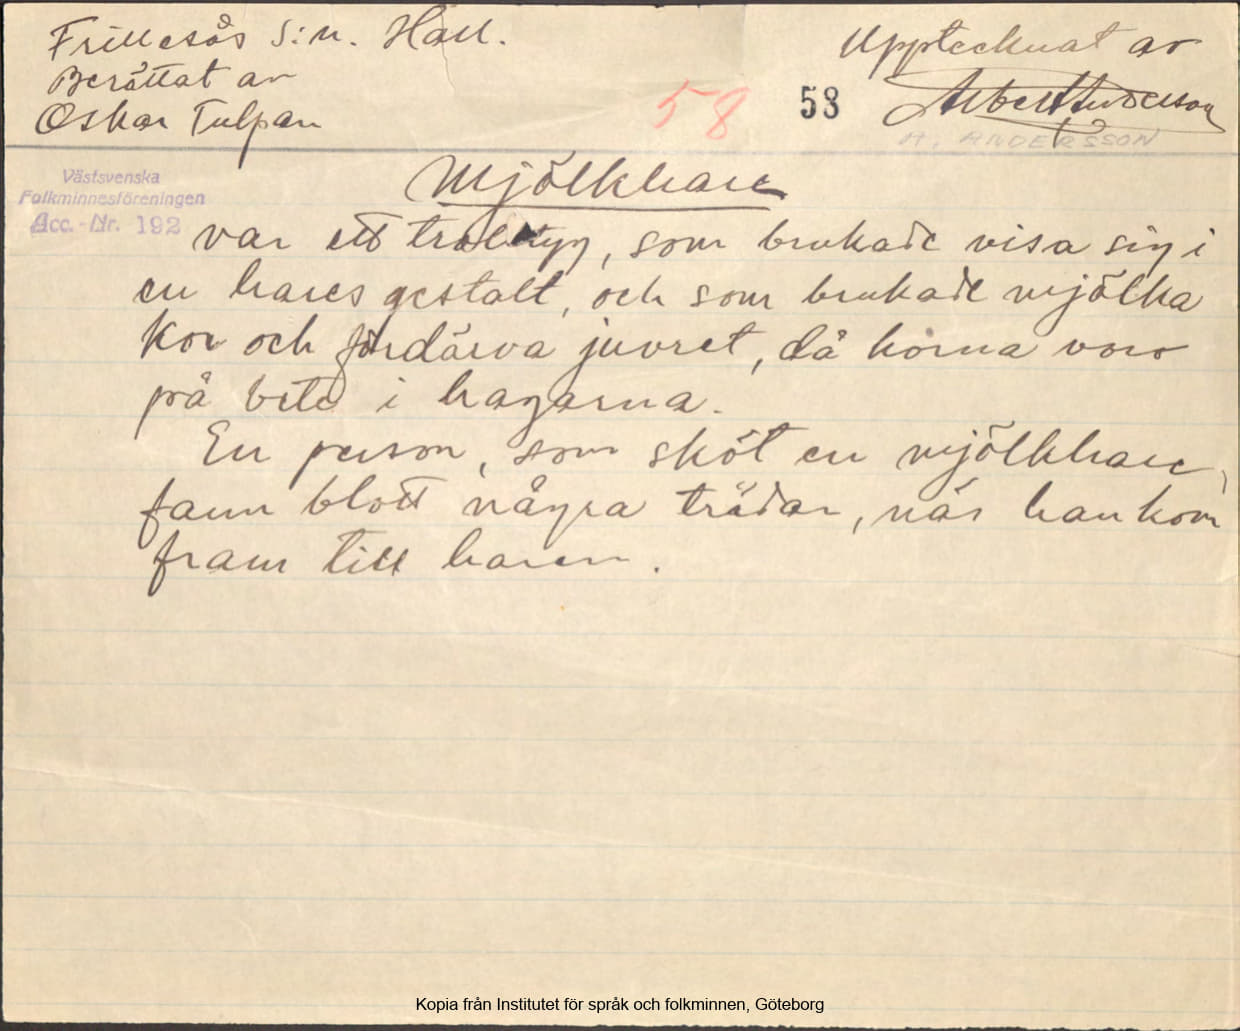 Frillesås S:n. Hall.
Berättat av
Oskar Tulpan
Upptecknat av
Albert Anderson
A. ANDERSSON
58
58
Västsvenska
Folkminnesföreningen
Acc.-Nr. 192
Mjölkhare
var ett trolltyg, som brukade visa sig i
en hares gestalt, och som brukade mjölka
kor och fördärva juvret, då korna voro
på bete i hagarna.
En person, som sköt en mjölkhare,
fann blott några trådar, när han kom
fram till haren.
Kopia från Institutet för språk och folkminnen, Göteborg